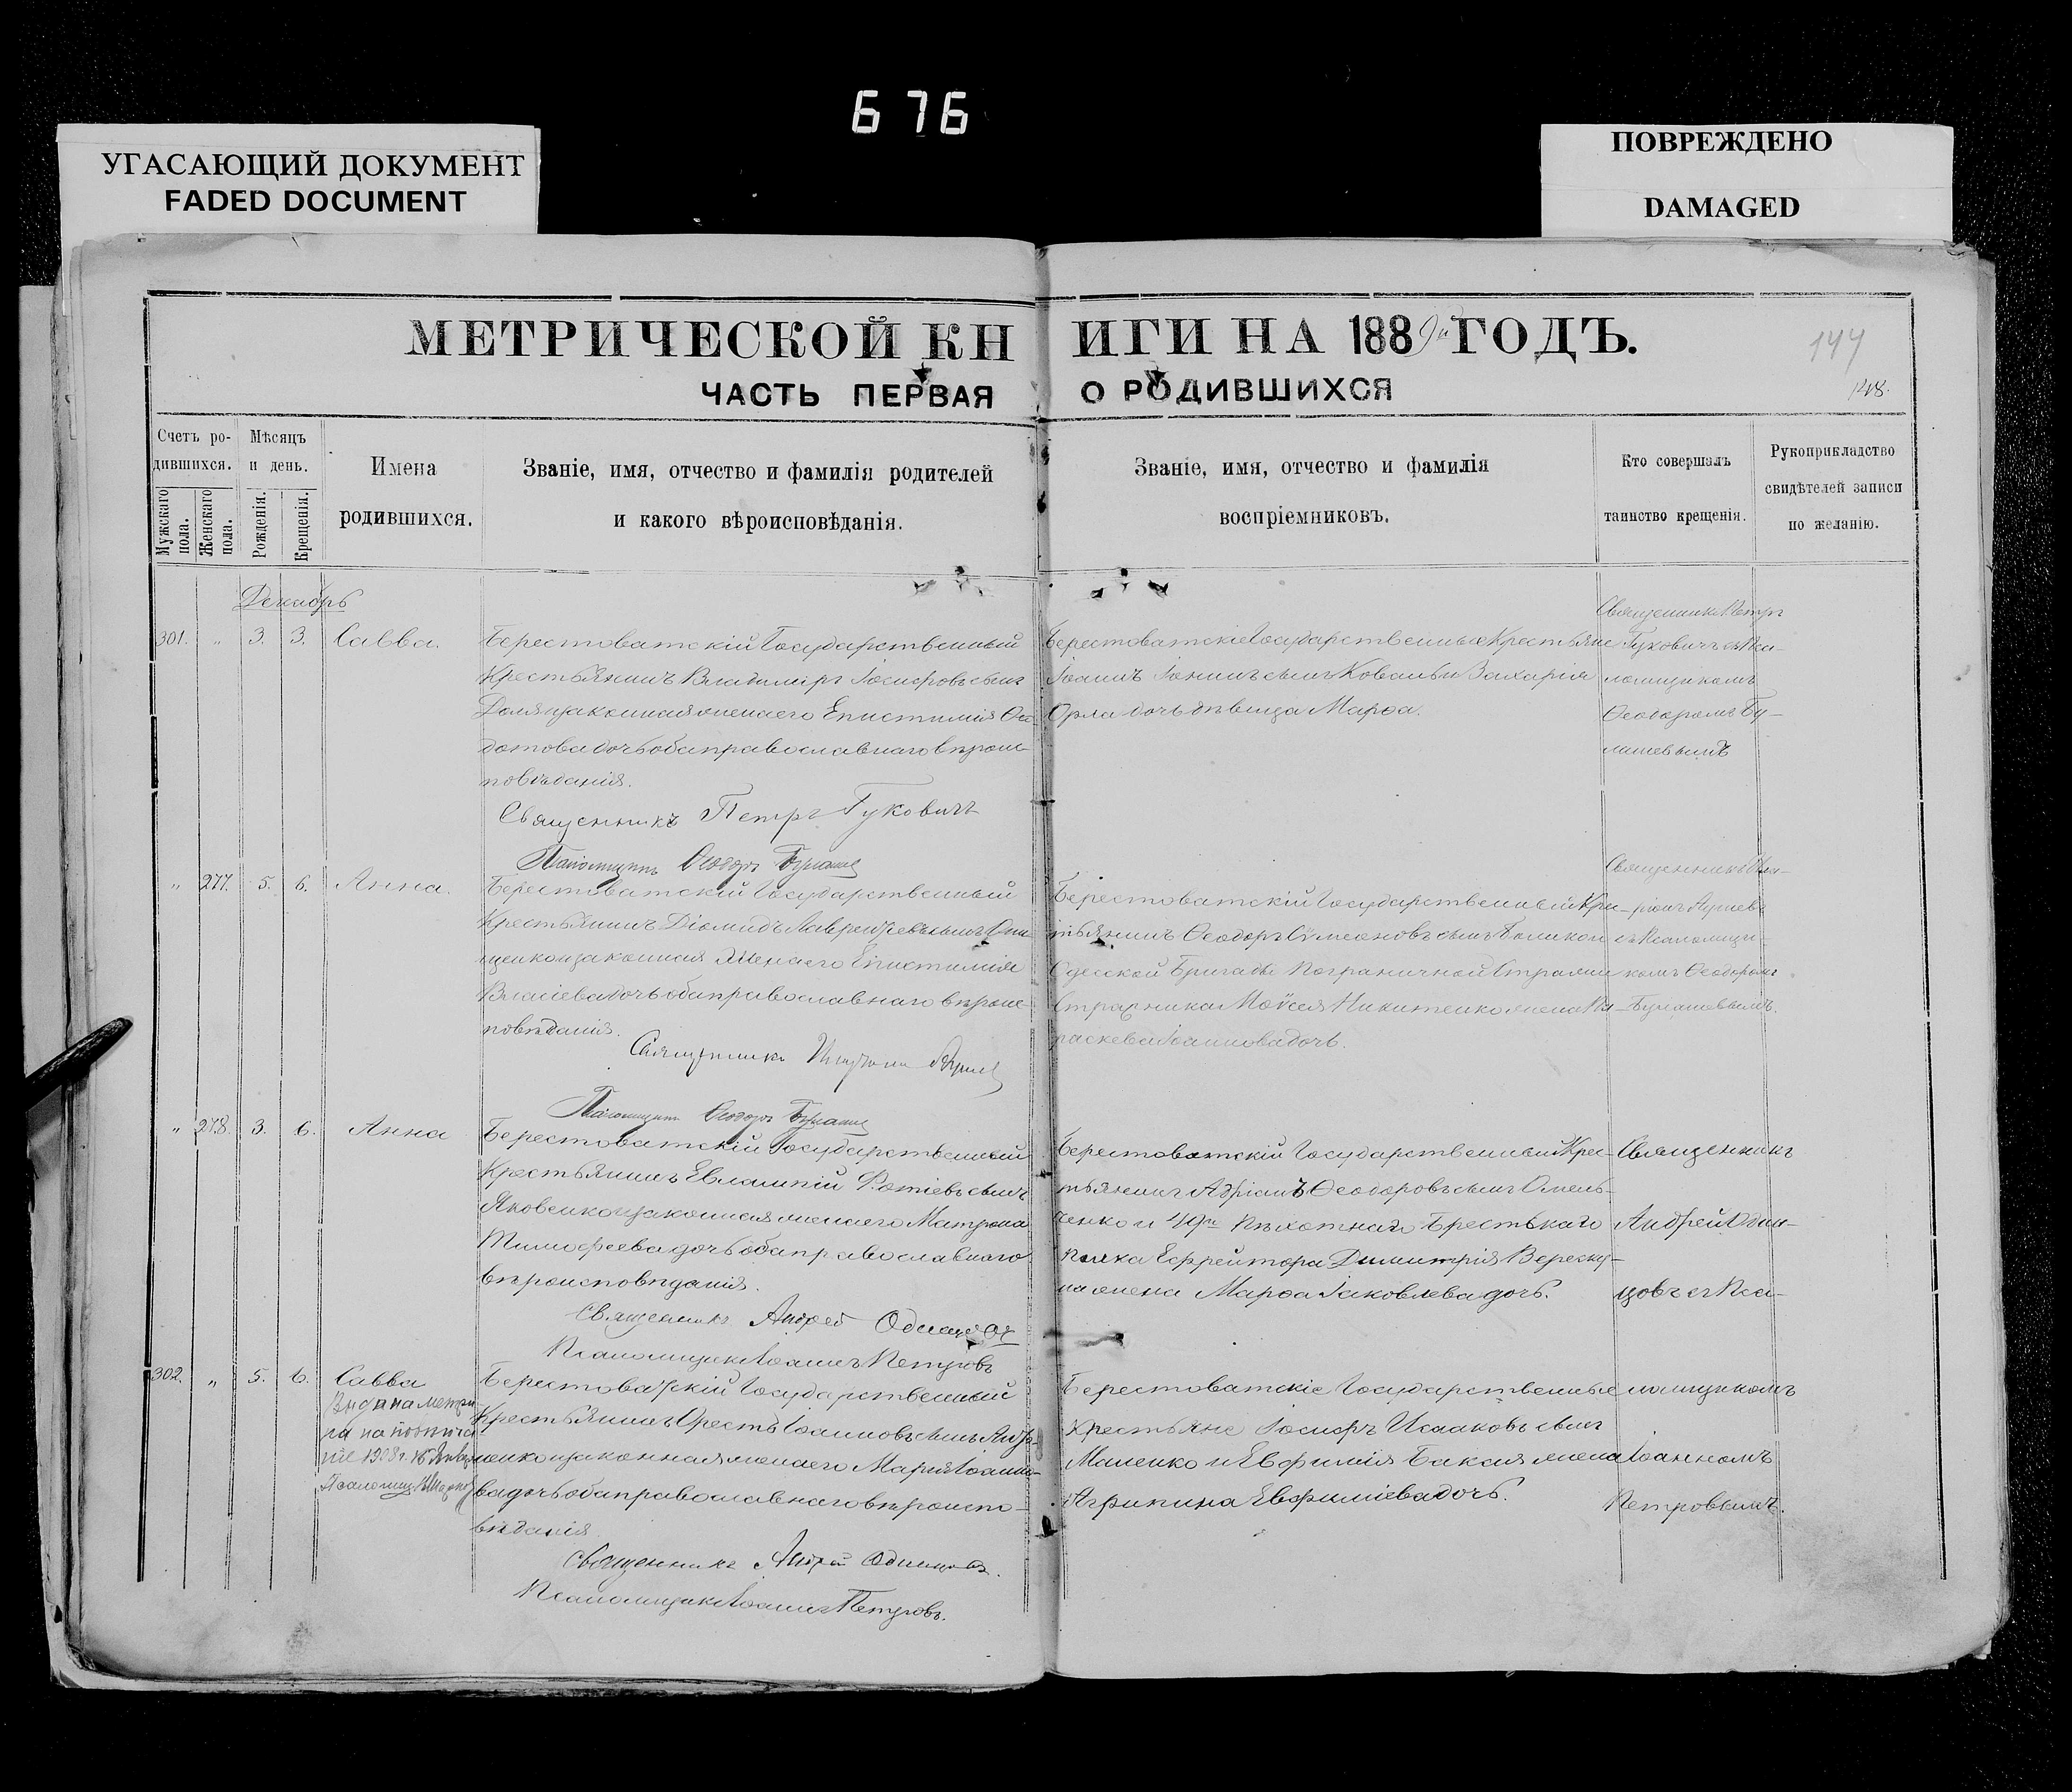 676
УГАСАЮЩИЙ ДОКУМЕНТ
FADED DOCUMENT
ПОВРЕЖДЕНО
DAMAGED
МЕТРИЧЕСКОЙ КНИГИ НА 1889й ГОДЪ.
144
148.
ЧАСТЬ ПЕРВАЯ О РОДИВШИХСЯ
Счетъ ро-
дившихся.
Мужскаго
пола.
Женскаго
пола.
Мѣсяцъ
и день.
Рожденія.
Крещенія.
Имена
родившихся.
Званіе, имя, отчество и фамилія родителей
и какого вѣроисповѣданія.
Званіе, имя, отчество и фамилія
воспріемниковъ.
Кто совершалъ
таинство крещенія.
Рукоприкладство
свидѣтелей записи
по желанію.
Декабрь
301. „ 3. 3. Савва.
Берестоватскій Государственный
Крестьянинъ Владиміръ Іосифовъ сынъ
Доля и законная жена его Епистимія Ѳео-
дотова дочь оба православнаго вѣроис-
повѣданія.
Священникъ Петръ Гуковичъ
Псаломщикъ Ѳеодоръ
Берестоватскіе Государственные Крестьяне
Іоаннъ сынъ Коваль и Захарія
Орла дочь дѣвица Марѳа.
Священникъ Петръ
Гуковичъ съ Пса-
ломщикомъ
Ѳеодоромъ
„ 277. 5. 6. Анна.
Берестоватскій Государственный
Крестьянинъ Діомидъ Лаврентіевъ сынъ Они-
щенко и законная жена его Епистимія
Власіева дочь оба православнаго вѣроис-
повѣданія.
Священникъ
Псаломщикъ Ѳеодоръ
Берестоватскій Государственный Крес-
тьянинъ Ѳеодоръ Сѵмеоновъ сынъ и
Одесской Бригады Пограничной Стражи
Стражника Моѵсея Никитенко жена Па-
раскева Іоаннова дочь.
Священникъ
съ Псаломщи-
комъ Ѳеодоромъ
„ 278. 3. 6. Анна
Берестоватскій Государственный
Крестьянинъ Евлампій Фотіевъ сынъ
Яковенко и законная жена его Матрона
Тимофеева дочь оба православнаго
вѣроисповѣданія.
Священникъ Андрей Одинцовъ
Псаломщикъ Іоаннъ Петровъ
Берестоватскій Государственный Крес-
тьянинъ Адріанъ Ѳеодоровъ сынъ Омель-
ченко и 49го Пѣхотнаго Брестскаго
Полка Ефрейтора Димитрія Вереску-
на жена Марѳа Іаковлева дочь.
Священникъ
Андрей Один-
цовъ съ Пса-
302. „ 5. 6. Савва
Выдана метри-
1908 г. 16 Января
Псаломщ.
Берестоватскій Государственный
Крестьянинъ Орестъ Іоанновъ сынъ
и законная жена его Марія Іоанно-
ва дочь оба православнаго вѣроиспо-
вѣданія
Священникъ Андрей Одинцовъ.
Псаломщикъ Іоаннъ Петровъ.
Берестоватскіе Государственные
Крестьяне Іосифъ Исааковъ сынъ
Маленко и Евфимія Баклая жена
Агрипина Евфиміева дочь.
ломщикомъ
Іоанномъ
Петровымъ.